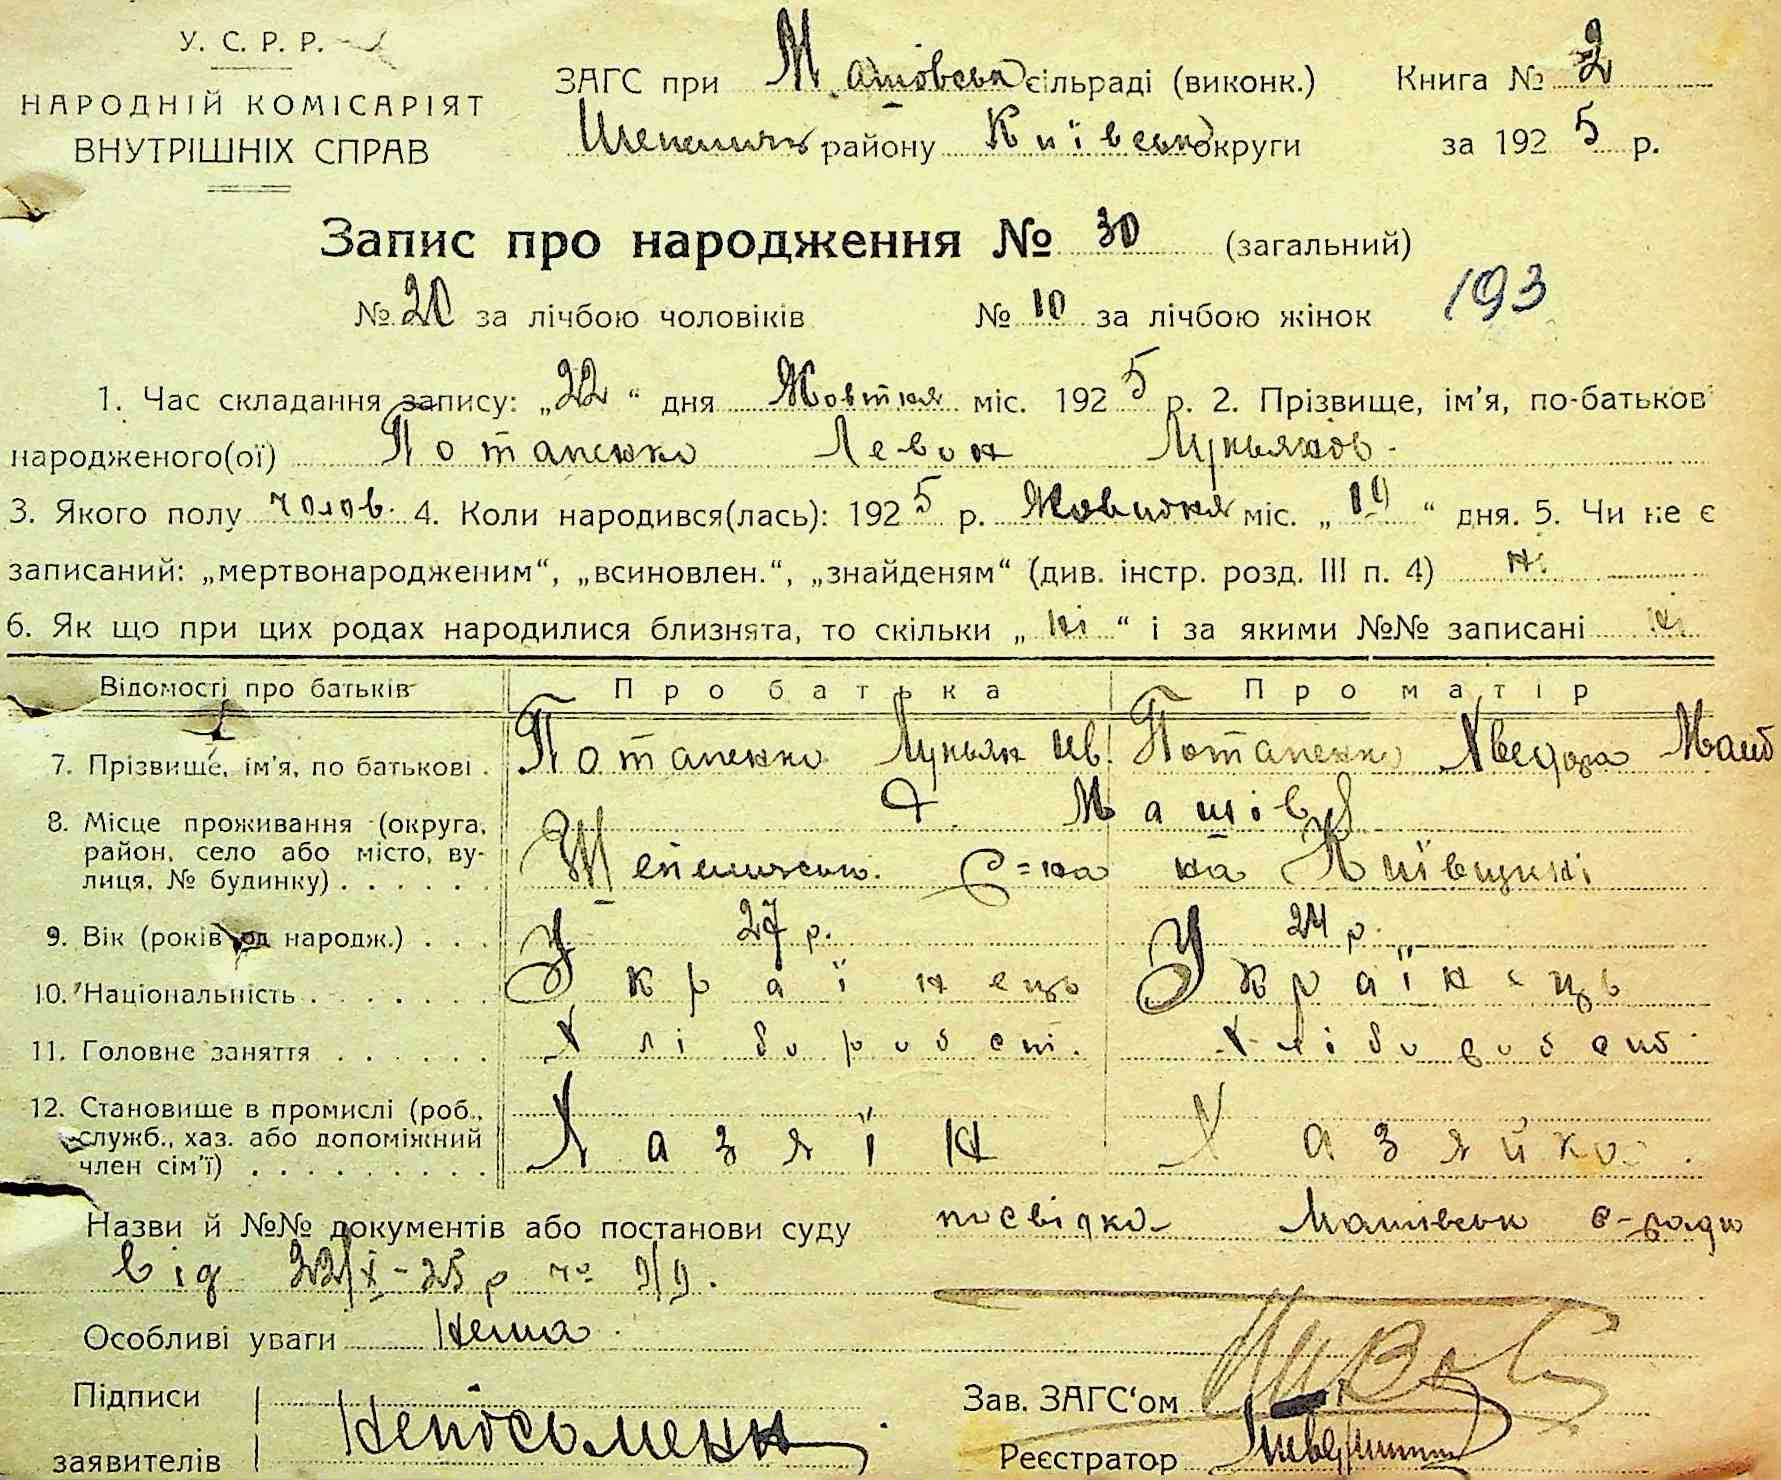 У. С. Р. Р.
НАРОДНІЙ КОМІСАРІЯТ
ВНУТРІШНІХ СПРАВ
ЗАГС при Машовськ сільраді (виконк.) Книга № 2
району Київськ округи за 1925 р.
Запис про народження № 30 (загальний)
№ 20 за лічбою чоловіків № 10 за лічбою жінок 193
1. Час складання запису: „22“ дня Жовтня міс. 1925 р. 2. Прізвище, ім'я, по-батьков
народженого(ої) Потапенко Левон Луньянов
3. Якого полу чолов. 4. Коли народився(лась): 1925 р. Жовтня міс. „19“ дня. 5. Чи не є
записаний: „мертвонародженим“, „всиновлен.“, „знайденям“ (див. інстр. розд. III п. 4) ні
6. Як що при цих родах народилися близнята, то скільки „ні“ і за якими №№ записані ні
Відомості про батьків Про батька Про матір
7. Прізвище, ім'я, по батькові. Потапенко Луньян Ів. Потапенко Хведора
8. Місце проживання (округа, Машів
район, село або місто, ву- р=на на Київщині
лиця, № будинку)
9. Вік (років од народж.) 27 р. 24 р.
10. Національність Українець Українець
11. Головне заняття Хлібороб Хлібороб
12. Становище в промислі (роб.,
служб., хаз. або допоміжний Хазяїн Хазяйка
член сім'ї)
Назви й №№ документів або постанови суду посвідка Машівськ с-ради
від 22/X-25 р
Особливі уваги Нема
Підписи Неписьменн Зав. ЗАГС'ом
заявителів Реєстратор